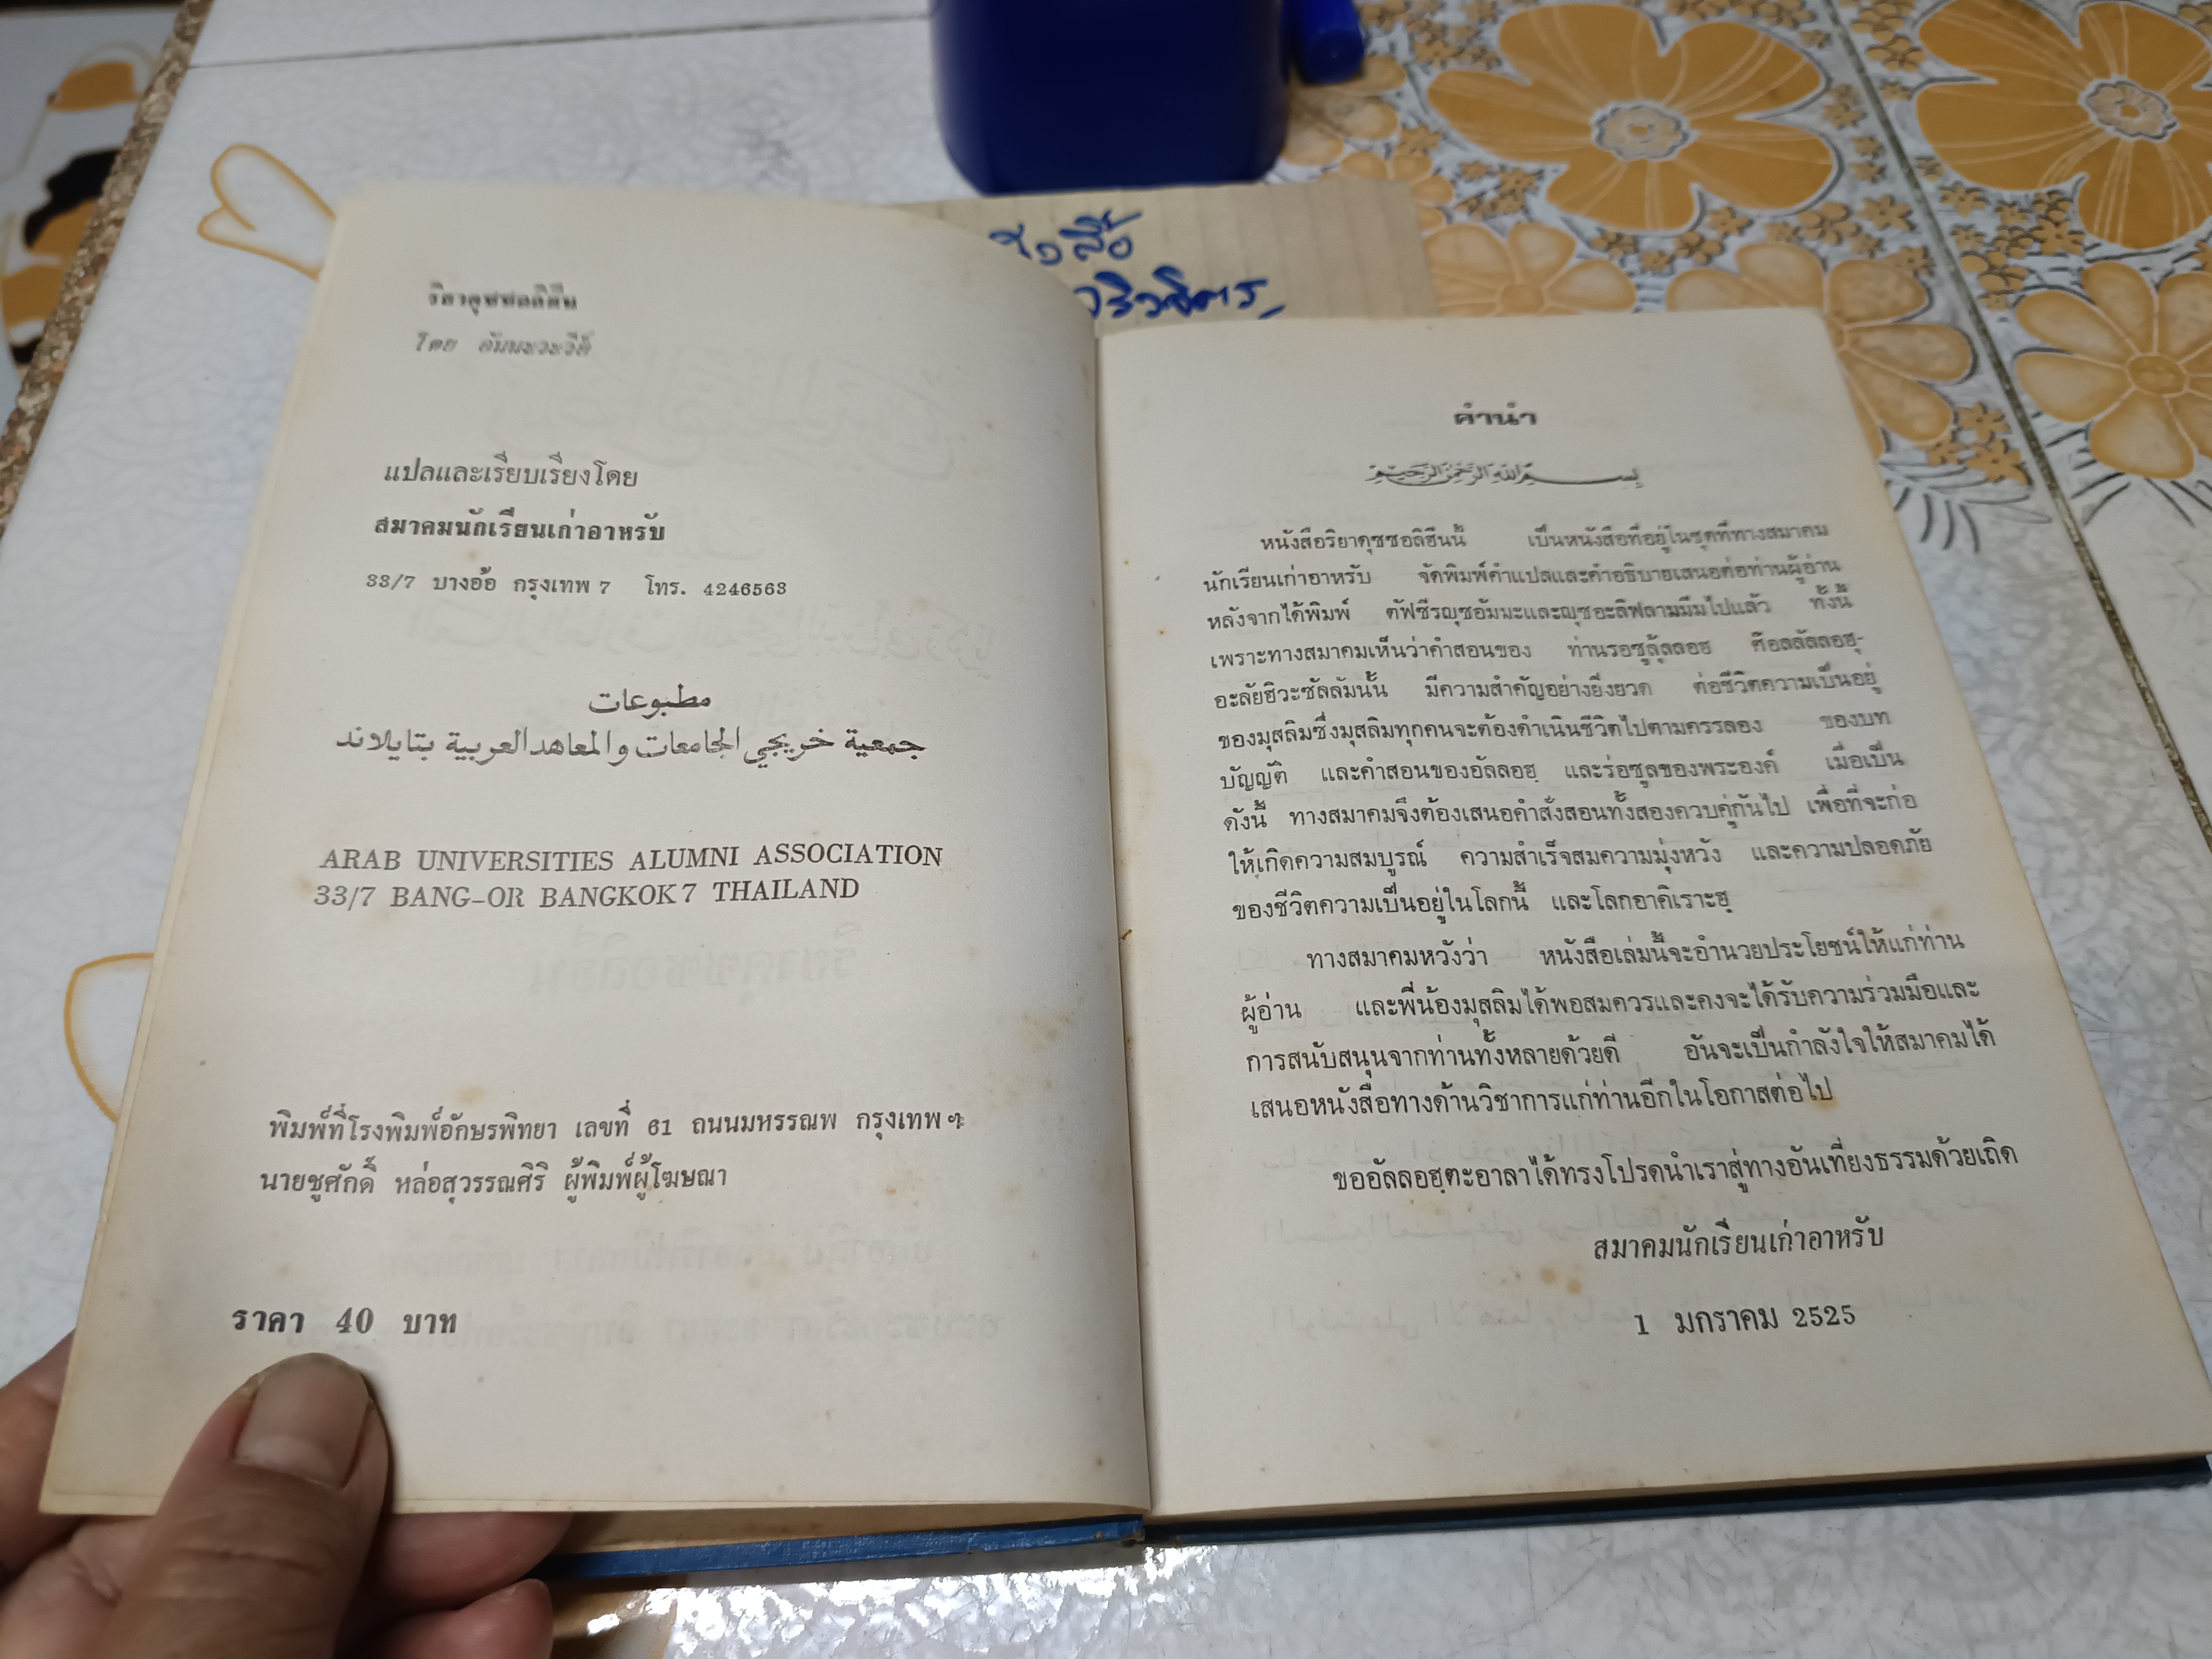 ริยาดุซซอลิฮีน
โดย อัมนะวะวีย์
แปลและเรียบเรียงโดย
สมาคมนักเรียนเก่าอาหรับ
33/7 บางอ้อ กรุงเทพ 7 โทร. 4246563
مطبوعات
جمعية خريجي الجامعات والمعاهد العربية بتايلاند
ARAB UNIVERSITIES ALUMNI ASSOCIATION
33/7 BANG-OR BANGKOK 7 THAILAND
พิมพ์ที่โรงพิมพ์อักษรพิทยา เลขที่ 61 ถนนมหรรณพ กรุงเทพ ฯ
นายชูศักดิ์ หล่อสุวรรณศิริ ผู้พิมพ์ผู้โฆษณา
ราคา 40 บาท
คำนำ
بسم الله الرحمن الرحيم
หนังสือริยาดุซซอลิฮีนนี้ เป็นหนังสือที่อยู่ในชุดที่ทางสมาคม
นักเรียนเก่าอาหรับ จัดพิมพ์คำแปลและคำอธิบายเสนอต่อท่านผู้อ่าน
หลังจากได้พิมพ์ ตัฟซีรญุซอัมมะและญุซอะลิฟลามมีมไปแล้ว ทั้งนี้
เพราะทางสมาคมเห็นว่าคำสอนของ ท่านรอซูลุ้ลลอฮ ศ๊อลลัลลอฮุ-
อะลัยฮิวะซัลลัมนั้น มีความสำคัญอย่างยิ่งยวด ต่อชีวิตความเป็นอยู่
ของมุสลิมซึ่งมุสลิมทุกคนจะต้องดำเนินชีวิตไปตามครรลอง ของบท
บัญญัติ และคำสอนของอัลลอฮฺ และร่อซูลของพระองค์ เมื่อเป็น
ดังนี้ ทางสมาคมจึงต้องเสนอคำสั่งสอนทั้งสองควบคู่กันไป เพื่อที่จะก่อ
ให้เกิดความสมบูรณ์ ความสำเร็จสมความมุ่งหวัง และความปลอดภัย
ของชีวิตความเป็นอยู่ในโลกนี้ และโลกอาคิเราะฮฺ
ทางสมาคมหวังว่า หนังสือเล่มนี้จะอำนวยประโยชน์ให้แก่ท่าน
ผู้อ่าน และพี่น้องมุสลิมได้พอสมควรและคงจะได้รับความร่วมมือและ
การสนับสนุนจากท่านทั้งหลายด้วยดี อันจะเป็นกำลังใจให้สมาคมได้
เสนอหนังสือทางด้านวิชาการแก่ท่านอีกในโอกาสต่อไป
ขออัลลอฮฺตะอาลาได้ทรงโปรดนำเราสู่ทางอันเที่ยงธรรมด้วยเถิด
สมาคมนักเรียนเก่าอาหรับ
1 มกราคม 2525